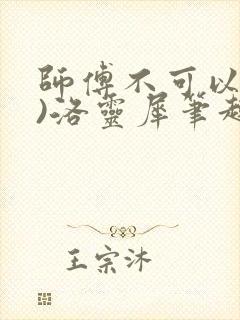 師傅不可以
)洛靈犀筆趣
王宗沐